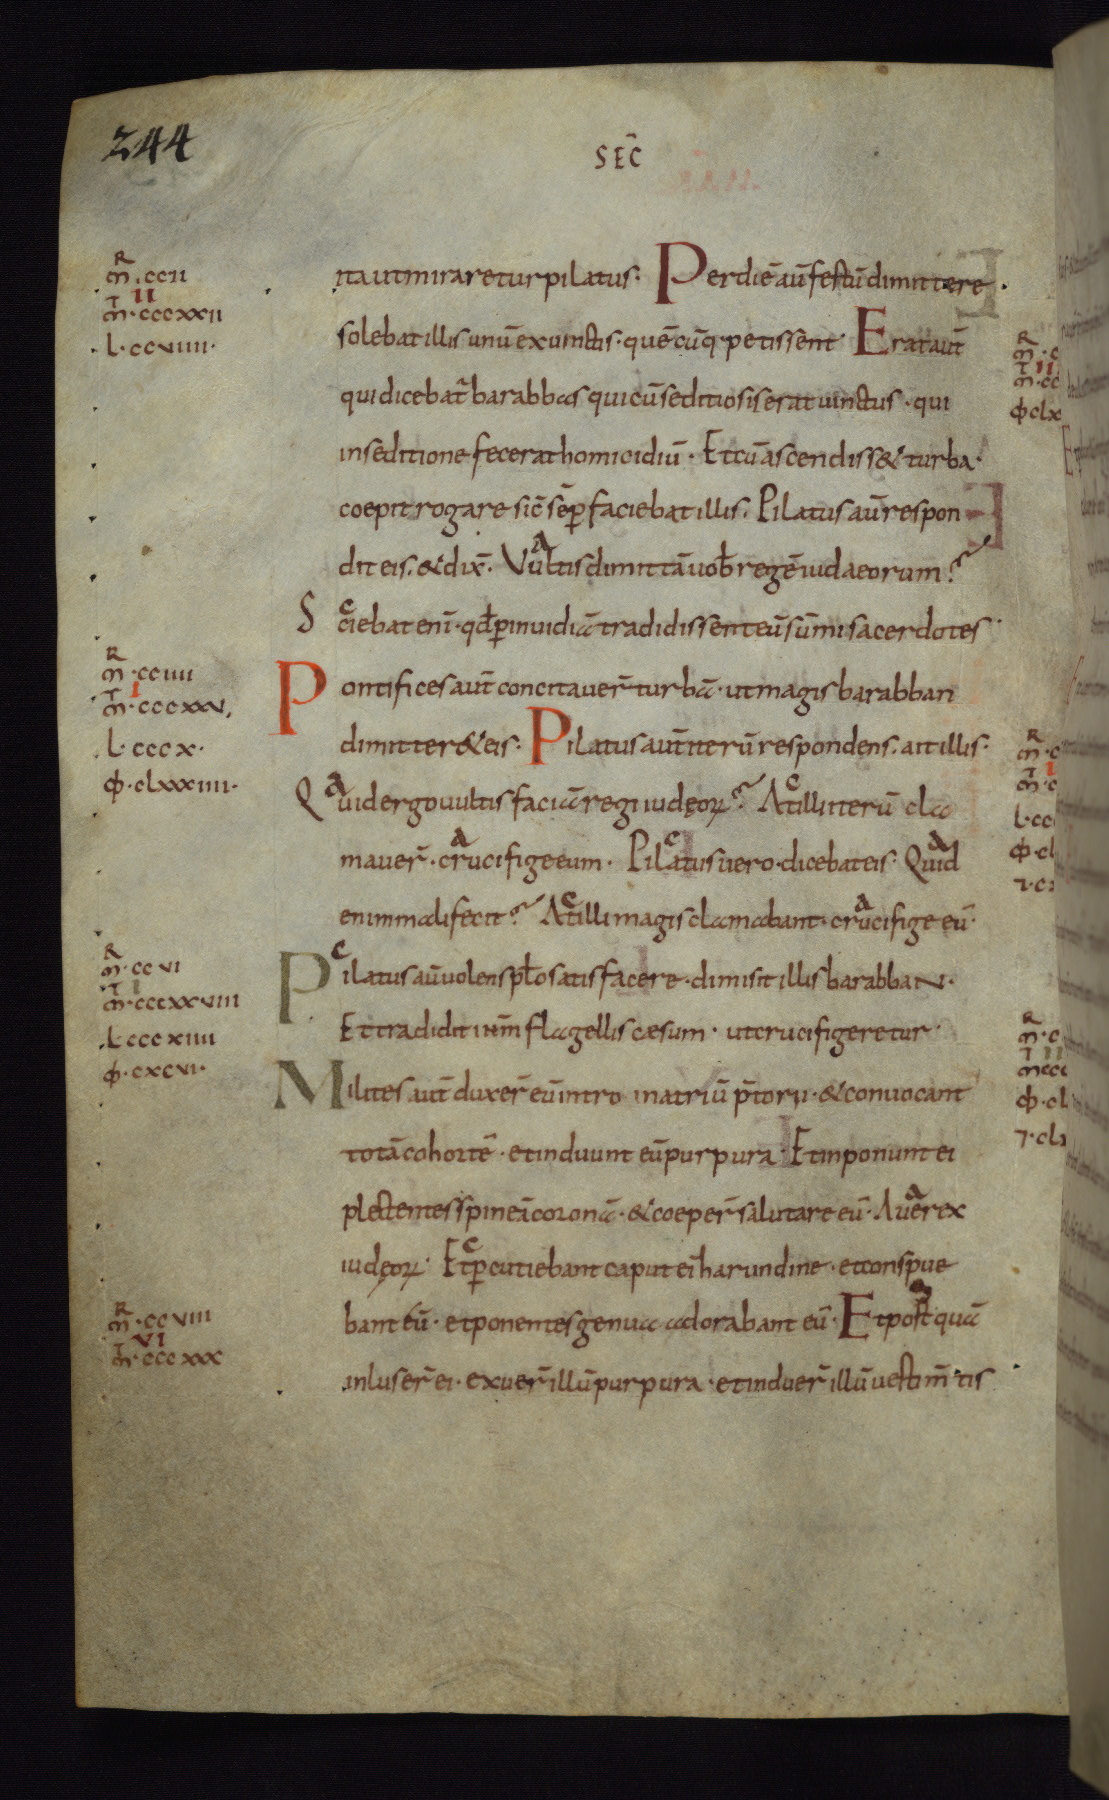 244
SEC̄
R
m̄·ccii
T II
m̄·cccxxii
L·ccviiii·
ita ut miraretur pilatus· Per diē aūt festū dimittere·
solebat illis unū ex uinctis· quē cūq; petissent· Erat aūt
qui dicebat̄ barabbas qui cū seditiosis erat uinctus· qui
in seditione fecerat homicidiū· Et cū ascendiss& turba·
coepit rogare sic̄ sēp faciebat illis· Pilatus aūt respon
dit eis· & dix̄· Vultis dimittā uob̄ regē iudaeorum?
Sciebat enī· qd̄ p inuidiā tradidissent eū sūmi sacerdotes·
R
m̄·cciiii
T I
m̄·cccxxv,
L·cccx·
ф·clxxxiiii·
Pontifices aūt concitauer̄ turbā· ut magis barabban
dimitter& eis· Pilatus aūt iterū respondens· ait illis·
Quid ergo uultis faciā regi iudęoꝝ? At illi iterū cla
mauer̄· crucifige eum· Pilatus uero· dicebat eis· Quid
enim mali fecit? At illi magis clamabant· crucifige eū·
R
m̄·ccvi
T I
m̄·cccxxviii
L·cccxiiii
ф·cxcvi·
Pilatus aū uolens pl̄o satisfacere· dimisit illis barabban·
Et tradidit ih̄m flagellis cæsum· ut crucifigeretur·
Milites aūt duxer̄ eū intro in atriū p̄torii· & conuocant
totā cohortē· et induunt eū purpura· Et inponunt ei
plectentes spineā coronā· & coeper̄ salutare eū· Aue rex
iudęoꝝ· Et pcutiebant caput ei harundine· et conspue
bant eū· et ponentes genua adorabant eū· Et postquā
R
m̄·ccviii
T VI
m̄·cccxxx
inluser̄ ei· exuer̄ illū purpura· et induer̄ illū uestim̄tis